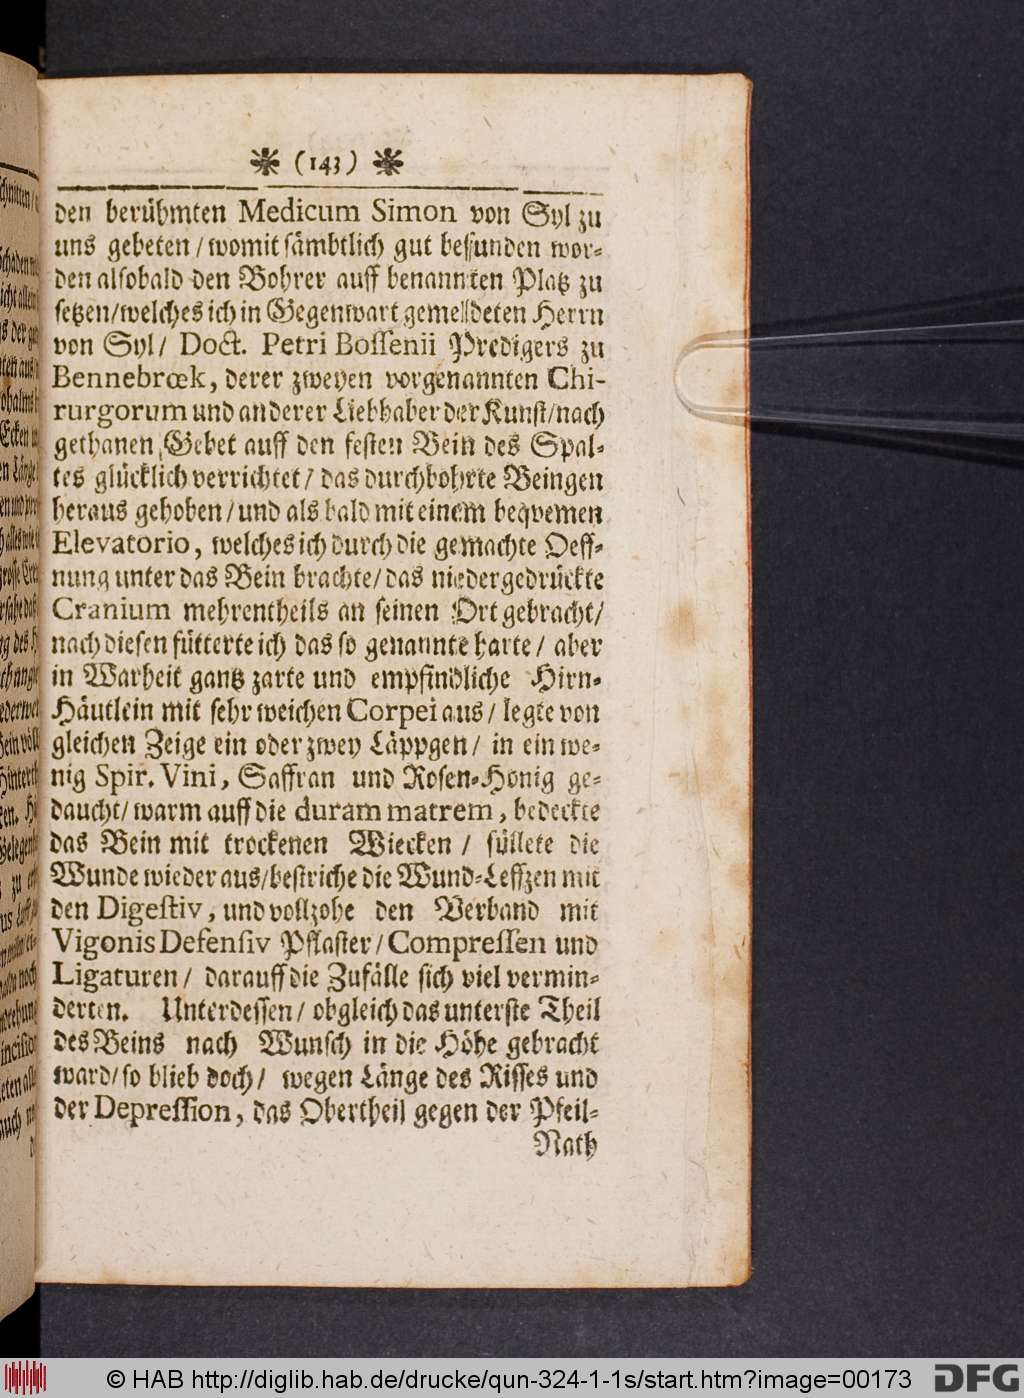 (143)
den berühmten Medicum Simon von Syl zu
uns gebeten / womit sämbtlich gut befunden wor-
den alsobald den Bohrer auff benannten Platz zu
setzen/welches ich in Gegenwart gemeldeten Herrn
von Syl / Doct. Petri Bossenii Predigers zu
Bennebrœk, derer zweyen vorgenannten Chi-
rurgorum und anderer Liebhaber der Kunst/nach
gethanen Gebet auff den festen Bein des Spal-
tes glücklich verrichtet / das durchbohrte Beingen
heraus gehoben / und als bald mit einem beqvemen
Elevatorio, welches ich durch die gemachte Oeff-
nung unter das Bein brachte/das niedergedrückte
Cranium mehrentheils an seinen Ort gebracht/
nach diesen fütterte ich das so genannte harte / aber
in Warheit gantz zarte und empfindliche Hirn-
Häutlein mit sehr weichen Corpei aus / legte von
gleichen Zeige ein oder zwey Läppgen / in ein we-
nig Spir. Vini, Saffran und Rosen-Honig ge-
daucht/ warm auff die duram matrem, bedeckte
das Bein mit trockenen Wiecken / füllete die
Wunde wieder aus/bestriche die Wund-Leffzen mit
den Digestiv, und vollzohe den Verband mit
Vigonis Defensiv Pflaster / Compressen und
Ligaturen / darauff die Zufälle sich viel vermin-
derten. Unterdessen / obgleich das unterste Theil
des Beins nach Wunsch in die Höhe gebracht
ward/ so blieb doch / wegen Länge des Risses und
der Depression, das Obertheil gegen der Pfeil-
Nath
© HAB http://diglib.hab.de/drucke/qun-324-1-1s/start.htm?image=00173
DFG